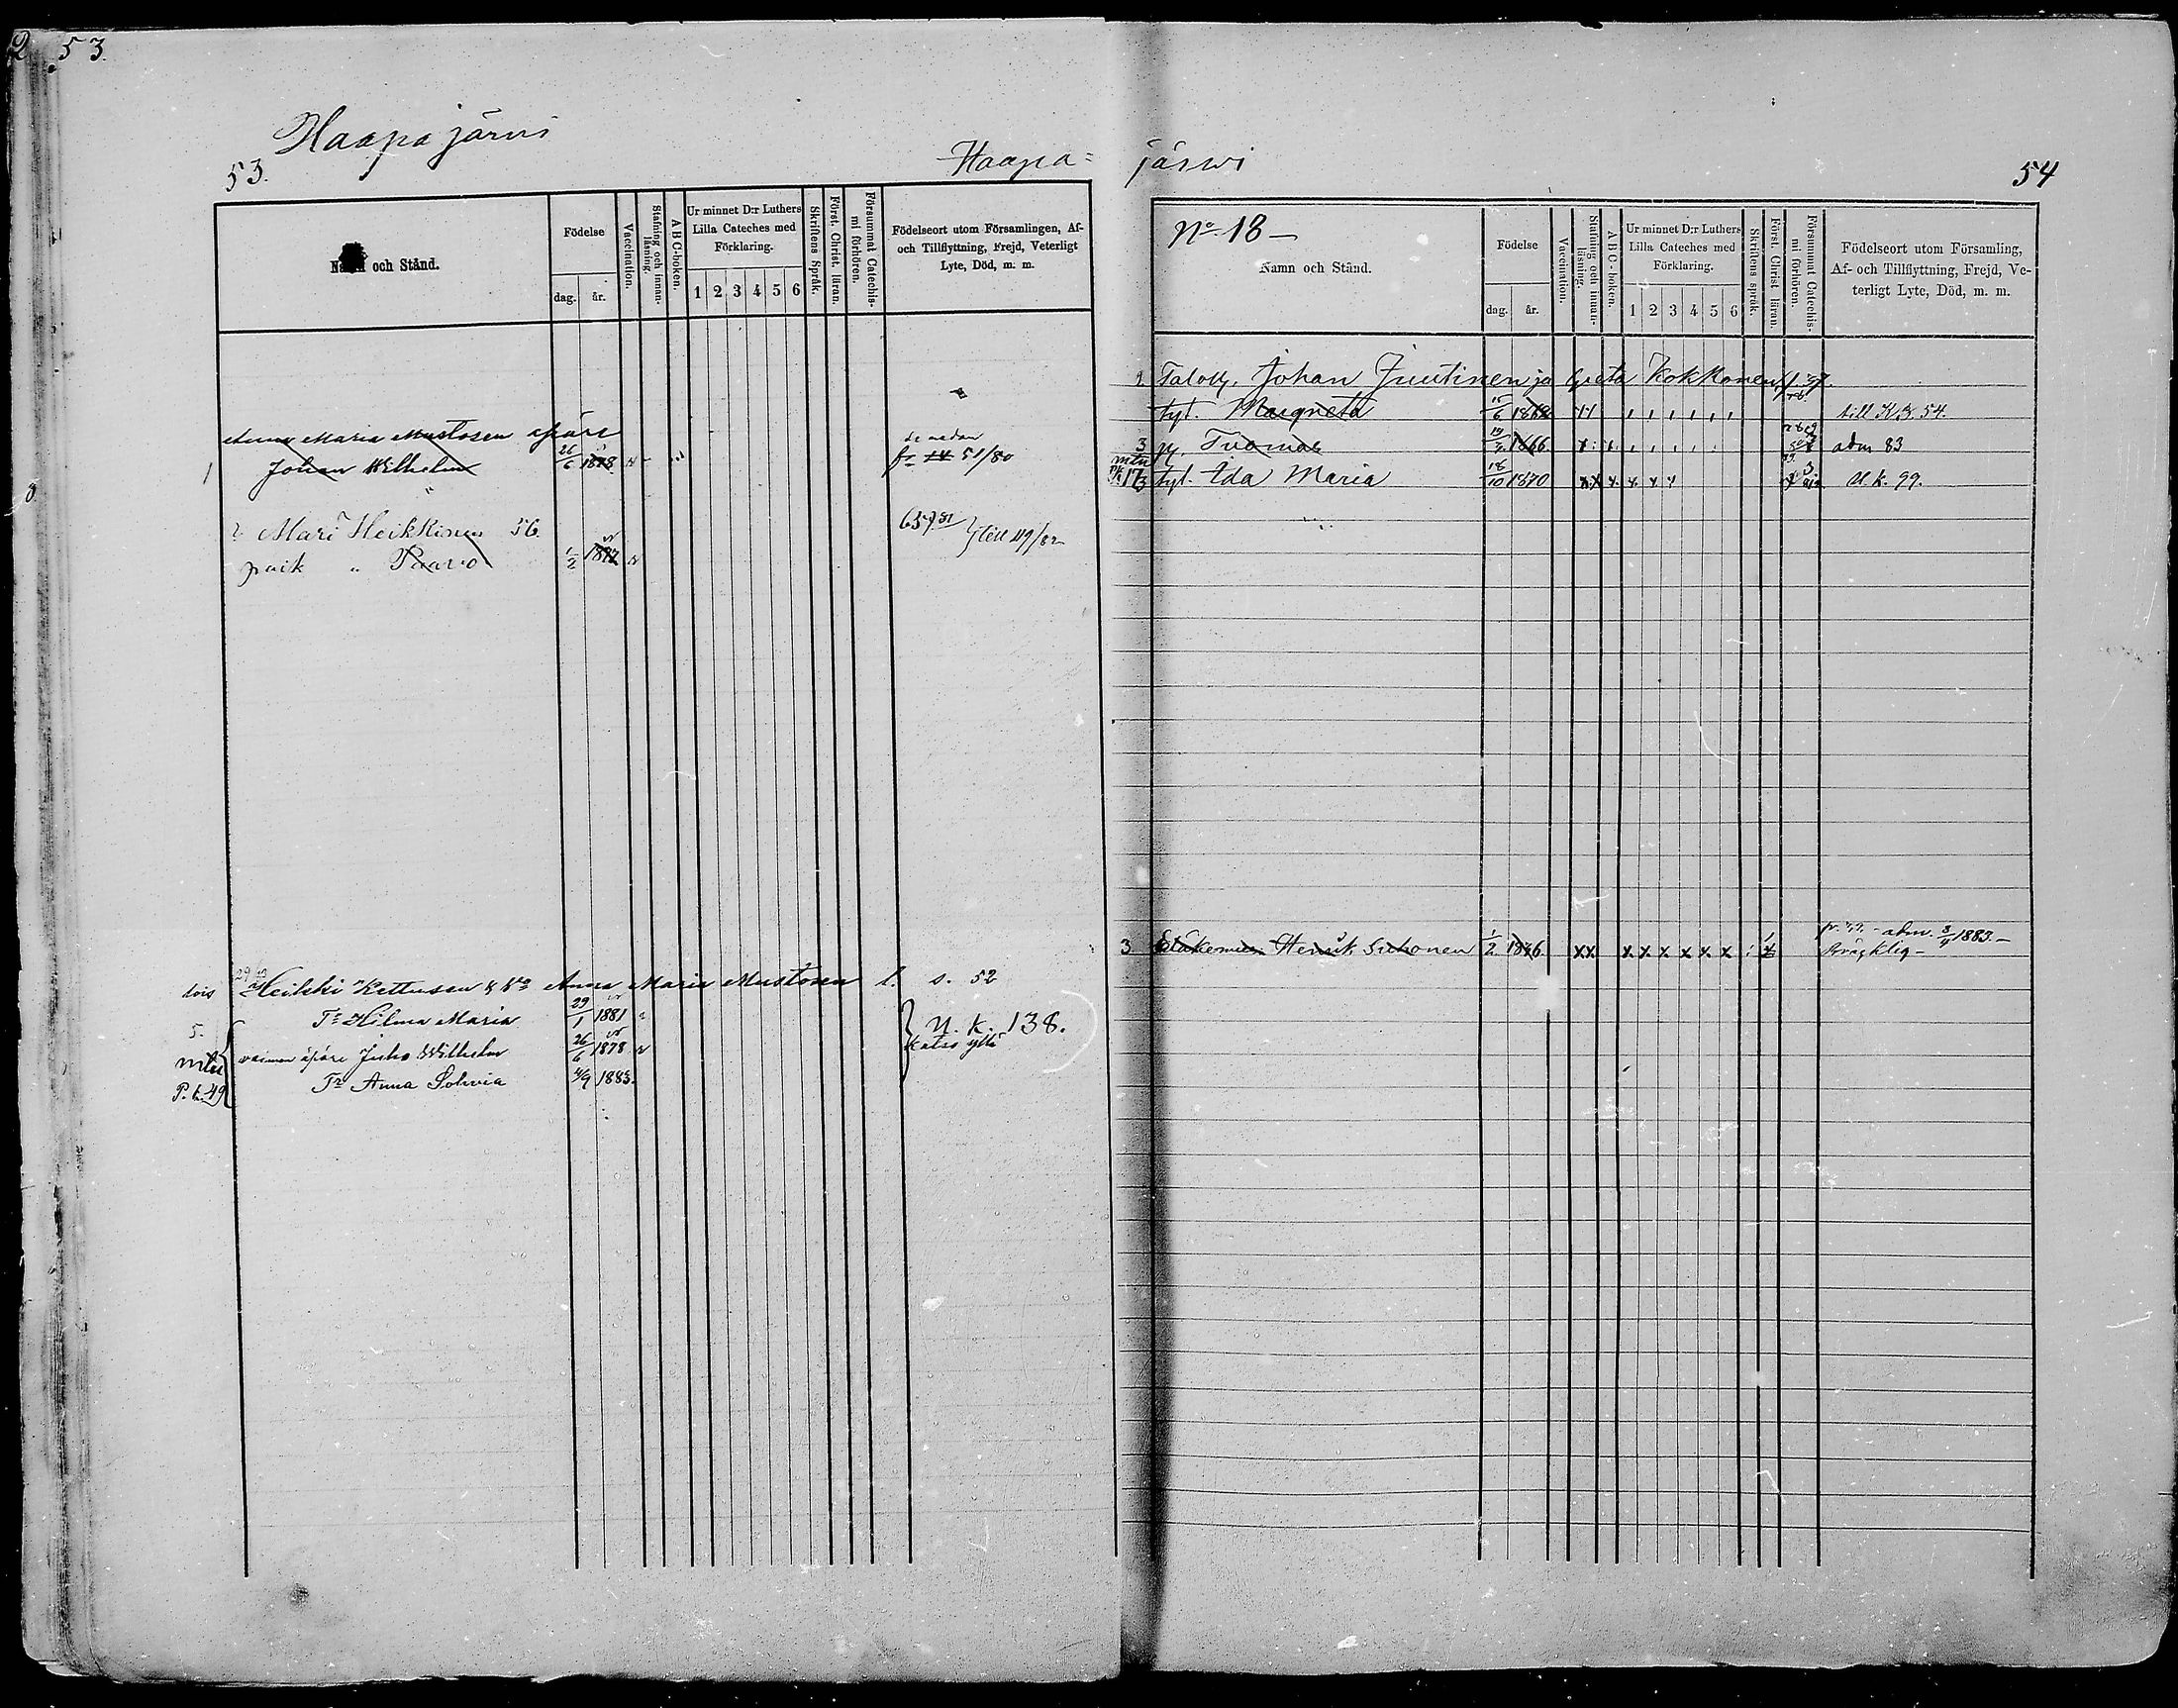 53
Haapajärvi
53.
Haapa=
Namn och Stånd.
Födelse
dag. år.
Vaccination.
Stafning och innanläsning.
A B C-boken.
Ur minnet D:r Luthers Lilla Cateches med Förklaring.
1 2 3 4 5 6
Skriftens Språk.
Först. Christ. läran.
Försummat Catechismi förhören.
Födelseort utom Församlingen, Af- och Tillflyttning, Frejd, Veterligt Lyte, Död, m. m.
Anna Maria Mustosen äpäre
1 Johan Wilhelm 26/6 1878 51/80
Mari Heikkinen 56.
Paavo 1/2 till 49/82
lois Heikki Kettusen & Anna Maria Mustosen l. s. 52
Tr Hilma Maria 29/1 1881
5. vaimon äpäre Juho Wilhelm 26/6 1878 katso yllä
U. k. 138.
Tr Anna Sohvia 4/9 1883.
P. k. 49
järwi
54
No 18 —
Namn och Stånd.
Födelse
dag. år.
Vaccination.
Stafning och innanläsning.
A B C-boken.
Ur minnet D:r Luthers Lilla Cateches med Förklaring.
1 2 3 4 5 6
Skriftens språk.
Först. Christ läran.
Försummat Catechismi förhören.
Födelseort utom Församling, Af- och Tillflyttning, Frejd, Veterligt Lyte, Död, m. m.
Johan Juutinen ja Greta Kokkonen
tyt. Margreta 15/6 1868 till K.K. 54.
3 p. Tuomas 1866 adm 83
tyt. Ida Maria 18/10 1870 U. k. 99.
3. Henrik Suhonen 1/2 1846. x x x x x x x x adm. 3/4 1883.— Bräcklig—